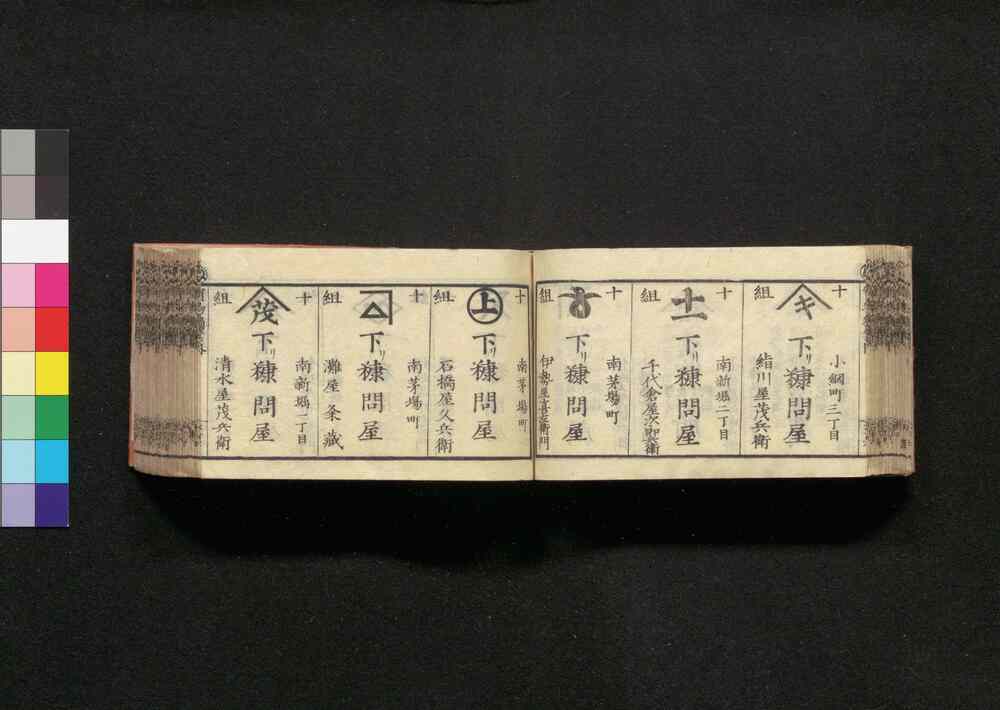 十組
キ
小網町三丁目
下リ糠問屋
鮱川屋茂兵衛
十組
十一
南新堀二丁目
下リ糠問屋
千代倉屋次郎兵衛
十組
南茅場町
下リ糠問屋
伊勢屋喜左衛門
十組
上
南茅場町
下リ糠問屋
石橋屋久兵衛
十組
南茅場町
下リ糠問屋
灘屋粂蔵
十組
茂
南新堀一丁目
下リ糠問屋
清水屋茂兵衛